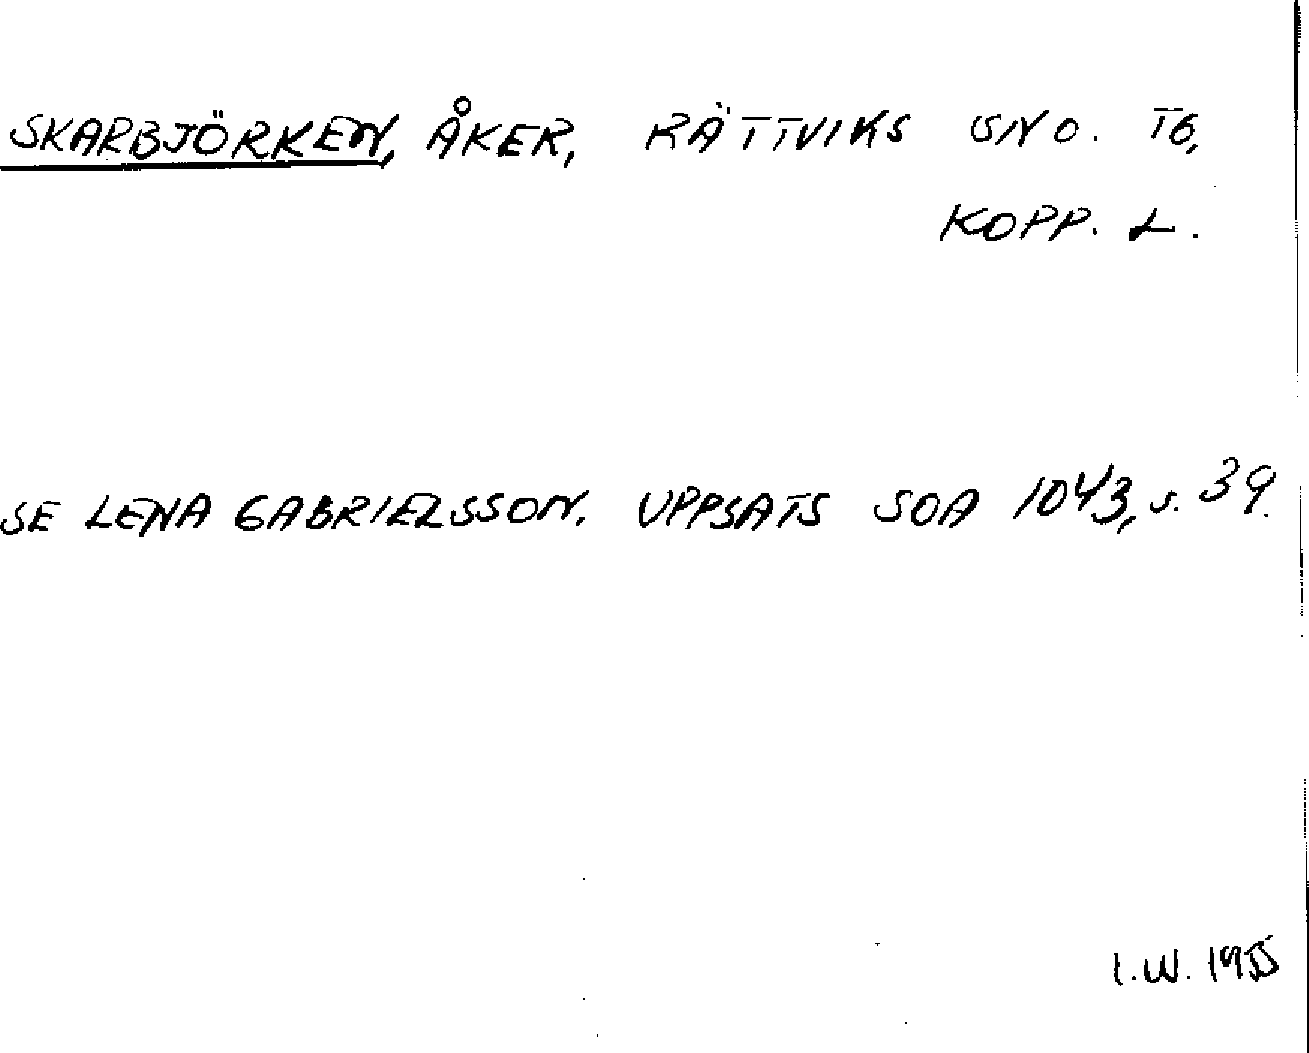 SKARBJÖRKEN, ÅKER, RÄTTVIKS UNO. TG,
KOPP. L.
SE LENA GABRIELSSON. UPPSATS SOA 1043, s. 39.
I.W. 1955